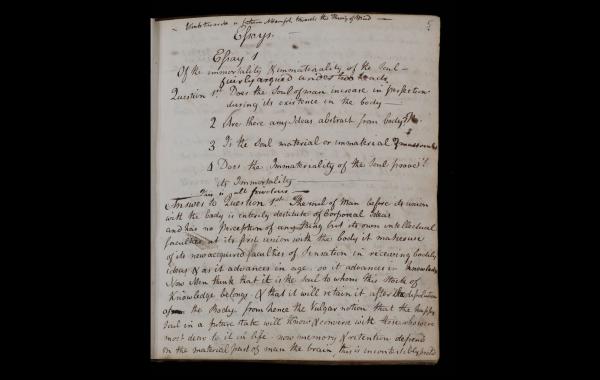 5
Hints towards a future Attempt towards the Theory of Mind
Essays.
Essay 1
Of the immortality & immateriality of the Soul
fairly argued under two heads
Question 1st Does the Soul of man increase in perfection
during its existence in the body
2 Are there any Ideas abstract from body?
3 Is the Soul material or immaterial?
4 Does the Immateriality of the Soul prove
its Immortality
This is all frivolous
Answer to Question 1st The soul of Man before its union
with the body is entirely destitute of Corporeal Ideas
and has no Perception of any thing but its own intellectual
faculties at its first union with the body it makes use
of its new acquired faculties of Sensation in receiving bodily
ideas & as it advances in age so it advances in Knowledge
Now Men think that it is the soul to whom this Stock of
Knowledge belongs & that it will retain it after the
the Body. from hence the Vulgar notion that the happy
Soul in a future state will know & converse with those who were
most dear to it in life now memory & retention depend
on the material part of man the brain, this is incontestibly